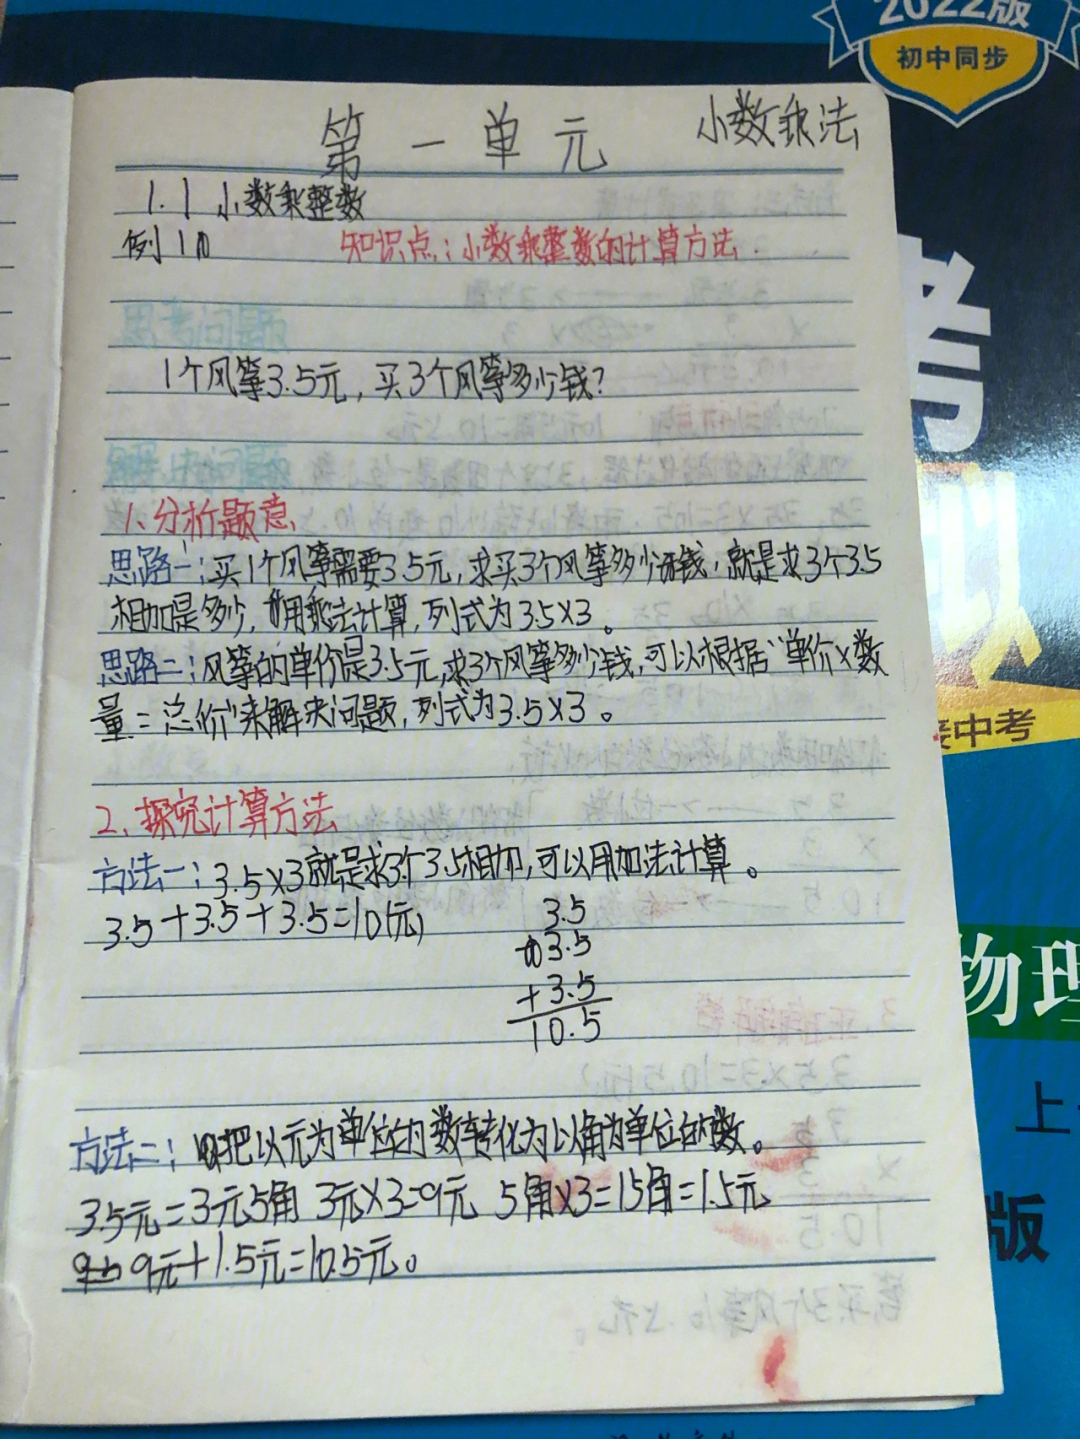 2022版
初中同步
第一单元 小数乘法
1.1 小数乘整数
例1
知识点：小数乘整数的计算方法.
思考问题
1个风筝3.5元，买3个风筝多少钱？
解决问题
1、分析题意
思路一：买1个风筝需要3.5元，求买3个风筝多少钱，就是求3个3.5
相加是多少，用乘法计算，列式为3.5×3。
思路二：风筝的单价是3.5元，求3个风筝多少钱，可以根据“单价×数
量＝总价”来解决问题，列式为3.5×3。
2、探究计算方法
方法一：3.5×3就是求3个3.5相加，可以用加法计算。
3.5+3.5+3.5=10(元)
3.5
3.5
+3.5
10.5
方法二：把以元为单位的数转化为以角为单位的数。
3.5元=3元5角 3元×3=9元 5角×3=15角=1.5元
9元+1.5元=10.5元。
考
接中考
物理
上
版